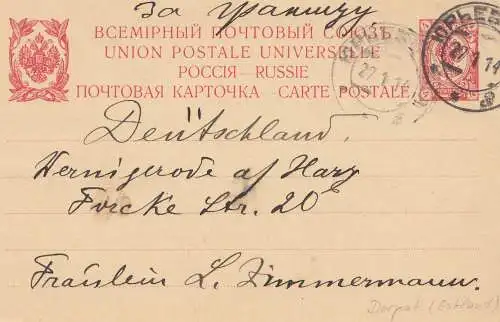 за границу
ВСЕМІРНЫЙ ПОЧТОВЫЙ СОЮЗЪ
UNION POSTALE UNIVERSELLE
РОССІЯ — RUSSIE
ПОЧТОВАЯ КАРТОЧКА - CARTE POSTALE
ЮРЬЕВ
27 1 14
ЮРЬЕВ
27.1.14
Deutschland.
Wernigerode a/ Harz
Forcke Str. 20
Fräulein L. Zimmermann.
Dorpat (Estland)